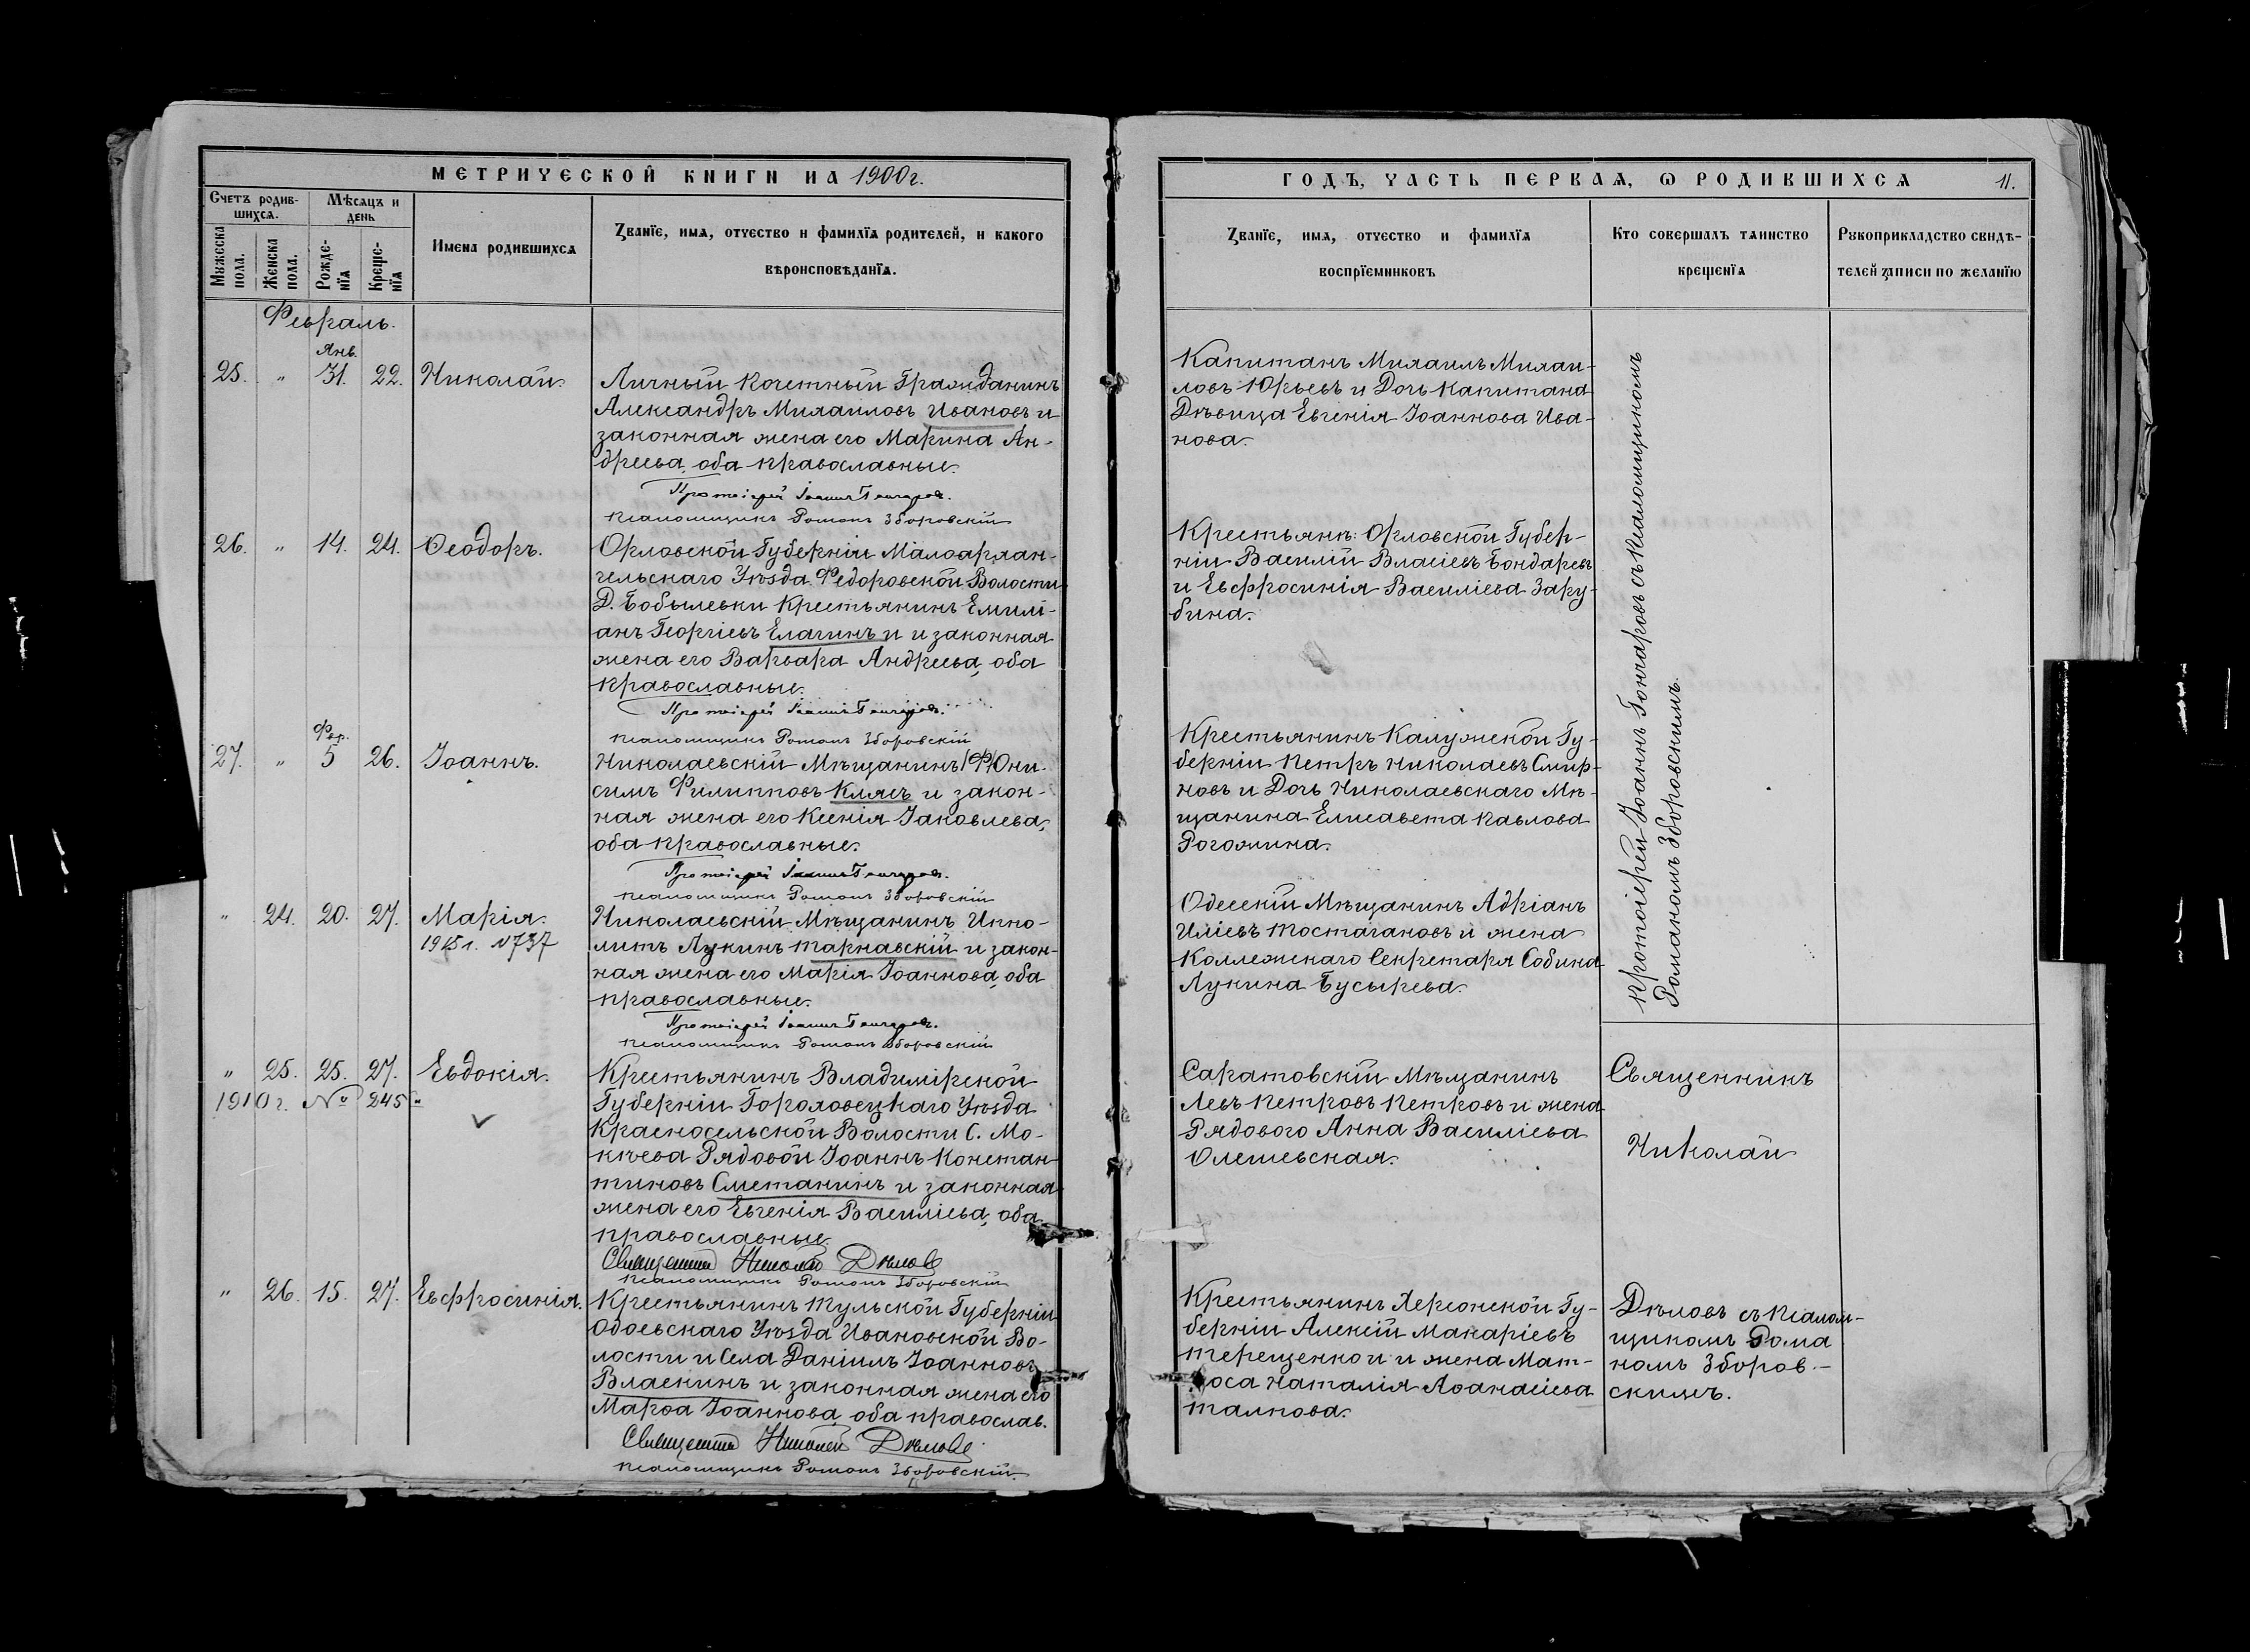 МЕТРИЧЕСКОЙ КНИГИ НА 1900 г.
Счетъ родив-
шихсѧ.
Мѣсѧцъ и
день
Мужеска
пола.
Женска
пола.
Рожде-
нїѧ
Креще-
нїѧ
Имена родившихсѧ
Ꙁванїе, имѧ, отчество и фамилїѧ родителей, и какого
вѣроисповѣданїѧ.
Февраль.
Янв.
25. „ 31. 22. Николай.
Личный Почетный Гражданинъ
Александръ Михаиловъ Ивановъ и
законная жена его Марина Ан-
дреева, оба православные.
Протоіерей Іоаннъ Гончаровъ.
Псаломщикъ Романъ Зборовскій
26. „ 14. 24. Ѳеодоръ.
Орловской Губерніи Малоархан-
гельскаго Уѣзда Федоровской Волости
Д. Бобылевки Крестьянинъ Емилі-
анъ Георгіевъ Елагинъ и и законная
жена его Варвара Андреева, оба
православные.
Протоіерей Іоаннъ Гончаровъ.
Псаломщикъ Романъ Зборовскій
Фев.
27. „ 5 26. Іоаннъ.
Николаевскій Мѣщанинъ (Ф) Они-
симъ Филипповъ Кляцъ и закон-
ная жена его Ксенія Іаковлева,
оба православные.
Протоіерей Іоаннъ Гончаровъ.
Псаломщикъ Романъ Зборовскій
„ 24. 20. 27. Марія.
1915 г. №737
Николаевскій Мѣщанинъ Иппо-
литъ Лукинъ Тарнавскій и закон-
ная жена его Марія Іоаннова, оба
православные.
Протоіерей Іоаннъ Гончаровъ.
Псаломщикъ Романъ Зборовскій
„ 25. 25. 27. Евдокія.
1910 г. № 245
Крестьянинъ Владимірской
Губерніи Гороховецкаго Уѣзда
Красносельской Волости С. Мо-
кѣева Рядовой Іоаннъ Констан-
тиновъ Сметанинъ и законная
жена его Евгенія Василіева, оба
православные.
Священникъ Николай Дѣловъ
Псаломщикъ Романъ Зборовскій
„ 26. 15. 27. Евфросинія.
Крестьянинъ Тульской Губерніи
Одоевскаго Уѣзда Ивановской Во-
лости и Села Даніилъ Іоанновъ
Власкинъ и законная жена его
Марѳа Іоаннова, оба православ.
Священникъ Николай Дѣловъ.
Псаломщикъ Романъ Зборовскій.
ГОДЪ, ЧАСТЬ ПЕРВАѦ, Ѡ РОДИВШИХСѦ 11.
Ꙁванїе, имѧ, отчество и фамилїѧ
воспрїемниковъ
Кто совершалъ таинство
крещенїѧ
Рукоприкладство свидѣ-
телей ꙁаписи по желанїю
Капитанъ Михаилъ Михаи-
ловъ Юрьевъ и Дочь Капитана
Дѣвица Евгенія Іоаннова Ива-
нова.
Крестьяне: Орловской Губер-
ніи Василій Власіевъ Бондаревъ
и Евфросинія Василіева Зару-
бина.
Крестьянинъ Калужской Гу-
берніи Петръ Николаевъ Смир-
новъ и Дочь Николаевскаго Мѣ-
щанина Елисавета Павлова
Рогожина.
Одесскій Мѣщанинъ Адріанъ
Иліевъ Тостагановъ и жена
Коллежскаго Секретаря Сабина
Лукина Бусырева.
Протоіерей Іоаннъ Гончаровъ съ псаломщикомъ
Романомъ Зборовскимъ.
Саратовскій Мѣщанинъ
Левъ Петровъ Петровъ и жена
Рядового Анна Василіева
Олешевская.
Священникъ
Николай
Крестьянинъ Херсонской Гу-
берніи Алексій Макаріевъ
Терещенко и и жена Мат-
роса Наталія Аѳанасіева
Талпова.
Дѣловъ съ псалом-
щикомъ Рома
номъ Зборов-
скимъ.